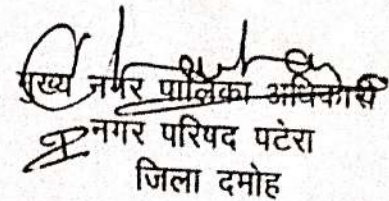 मुख्य नगर पालिका अधिकारी
नगर परिषद पटेरा
जिला दमोह